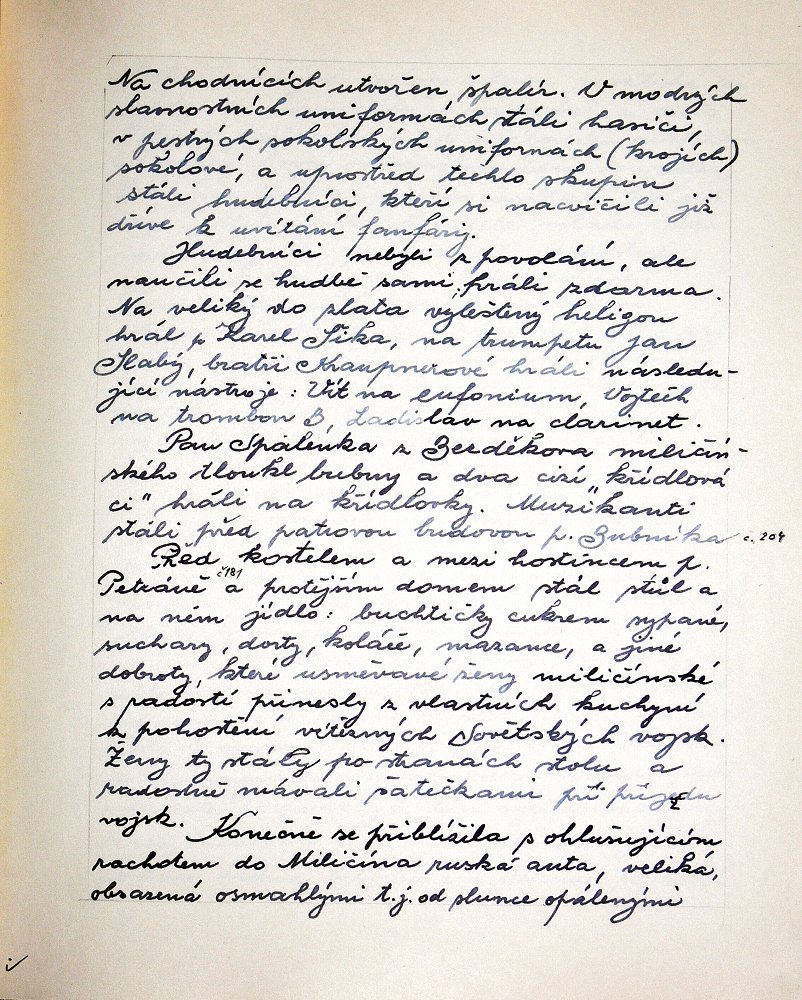 Na chodnících utvořen špalír. V modrých
slavnostních uniformách stáli hasiči,
v pestrých sokolských uniformách (krojích)
sokolové, a uprostřed těchto skupin
stáli hudebníci, kteří si nacvičili již
dříve k uvítání fanfáry.
Hudebníci nebyli z povolání, ale
naučili se hudbě sami, hráli zdarma.
Na veliký do zlata vyleštěný heligon
hrál p Karel Šika, na trumpetu Jan
Slabý, bratři Kraupnerové hráli následu-
jící nástroje: Vít na eufonium, Vojtěch
na trombon B, Ladislav na clarinet.
Pan Spálenka z Bezděkova miličín-
ského tloukl bubny a dva cizí „křídlová
ci" hráli na křídlovky. Muzikanti
stáli před patrovou budovou p. Bubníka č. 204
Před kostelem a mezi hostincem p.
Petráně č181 a protějším domem stál stůl a
na něm jídlo: buchtičky cukrem sypané,
suchary, dorty, koláče, mazance, a jiné
dobroty, které usměvavé ženy miličínské
s radostí přinesly z vlastních kuchyní
k pohostění vítězných Sovětských vojsk.
Ženy ty stály po stranách stolu a
radostně mávali šatečkami při příjezdu
vojsk. Konečně se přiblížila s ohlušujícím
rachotem do Miličína ruská auta, veliká,
obsazená osmahlými t.j. od slunce opálenými